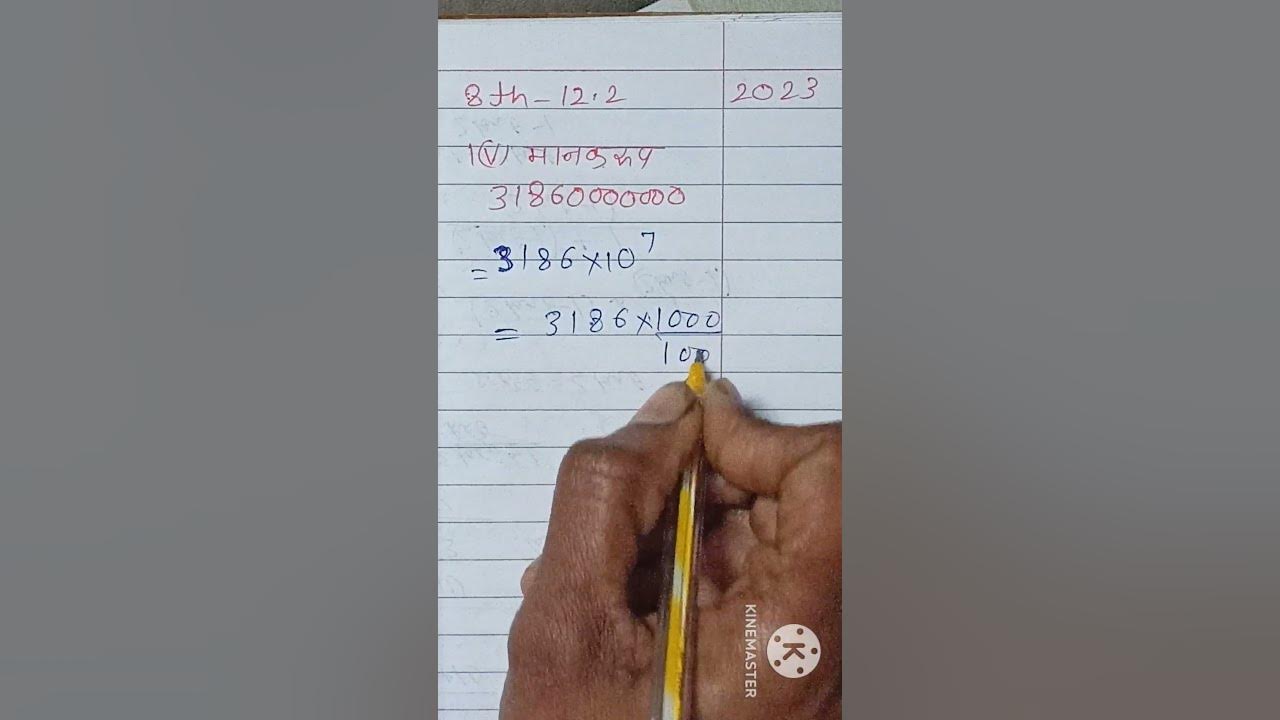 8th - 12.2
2023
1(V) मानक रूप
31860000000
= 3186×10⁷
= 3186×1000
100
KINEMASTER